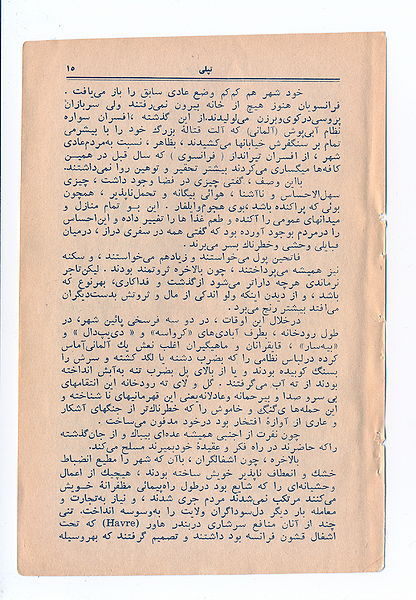 تپلی ۱۵
خود شهر هم کم‌کم وضع عادی سابق را باز می‌یافت .
فرانسویان هنوز هیچ از خانه بیرون نمی‌رفتند ولی سربازان
پروسی‌درکوی‌وبرزن می‌لولیدند.از این گذشته ،افسران سواره
نظام آبی‌پوش (آلمانی) که آلت قتالهٔ بزرگ خود را با بیشرمی
تمام بر سنگفرش خیابانها می‌کشیدند ، بظاهر ، نسبت به‌مردم‌عادی
شهر ، از افسران تیرانداز ( فرانسوی ) که سال قبل در همین
کافه‌ها میگساری می‌کردند بیشتر تحقیر و توهین روا نمی‌داشتند.
بااین وصف ، گفتی چیزی در فضا وجود داشت ، چیزی
سهل‌الاحساس و ناآشنا ، هوائی بیگانه و تحمل‌ناپذیر ، همچون
بوئی که پراکنده باشد ،بوی هجوم‌وایلغار . این بو تمام منازل و
میدانهای عمومی را آکنده و طعم غذا ها را تغییر داده و این‌احساس
را درمردم بوجود آورده بود که گفتی همه در سفری دراز ، درمیان
قبایلی وحشی وخطرناك بسر می‌برند.
فاتحین پول می‌خواستند و زیادهم می‌خواستند ، و سکنه
نیز همیشه می‌پرداختند ، چون بالاخره ثروتمند بودند . لیکن‌تاجر
نرماندی هرچه داراتر می‌شود ازگذشت و فداکاری، بهرنوع که
باشد ، و از دیدن اینکه ولو اندکی از مال و ثروتش بدست‌دیگران
می‌افتد بیشتر رنج می‌برد .
درخلال این اوقات ، در دو سه فرسخی پائین شهر، در
طول رودخانه ، بطرف آبادی‌های «کرواسه» و « دی‌یپ‌دال » و
«بیه‌سار» ، قایقرانان و ماهیگیران اغلب نعش یك آلمانی‌آماس
کرده درلباس نظامی را که بضرب دشنه یا لگد کشته و سرش را
بسنگ کوبیده بودند و یا از بالای پل بضرب تنه به‌آبش انداخته
بودند از ته آب می‌گرفتند . گل و لای ته رودخانه این انتقامهای
بی سرو صدا و بیرحمانه وعادلانه‌یعنی این قهرمانیهای نا شناخته و
این حمله‌های گنگ و خاموش را که خطرناك‌تر از جنگهای آشکار
و عاری از آوازهٔ افتخار بود درخود مدفون می‌ساخت .
چون نفرت از اجنبی همیشه عده‌ای بیباك و از جان‌گذشته
راکه حاضرند در راه فکر و عقیدهٔ خودبمیرند مسلح می‌کند.
بالاخره ، چون اشغالگران ، باآن که شهر را مطیع انضباط
خشك و انعطاف ناپذیر خویش ساخته بودند ، هیچیك از اعمال
وحشیانه‌ای را که شایع بود درطول راه‌پیمائی مظفرانهٔ خویش
می‌کنند مرتکب نمی‌شدند مردم جری شدند ، و نیاز به‌تجارت و
معامله بار دیگر دل‌سوداگران ولایت را به‌وسوسه انداخت. تنی
چند از آنان منافع سرشاری دربندر هاور (Havre) که تحت
اشغال قشون فرانسه بود داشتند و تصمیم گرفتند که بهروسیله